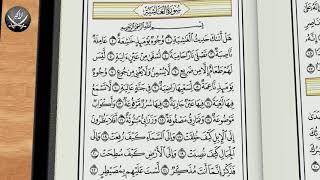 سُورَةُ الْغَاشِيَةِ
بِسْمِ اللَّهِ الرَّحْمَٰنِ الرَّحِيمِ
هَلْ أَتَىٰكَ حَدِيثُ الْغَٰشِيَةِ ١ وُجُوهٌ يَوْمَئِذٍ خَٰشِعَةٌ ٢ عَامِلَةٌ
نَّاصِبَةٌ ٣ تَصْلَىٰ نَارًا حَامِيَةً ٤ تُسْقَىٰ مِنْ عَيْنٍ ءَانِيَةٍ ٥ لَّيْسَ
لَهُمْ طَعَامٌ إِلَّا مِن ضَرِيعٍ ٦ لَّا يُسْمِنُ وَلَا يُغْنِي مِن جُوعٍ ٧ وُجُوهٌ
يَوْمَئِذٍ نَّاعِمَةٌ ٨ لِّسَعْيِهَا رَاضِيَةٌ ٩ فِي جَنَّةٍ عَالِيَةٍ ١٠ لَّا تَسْمَعُ
فِيهَا لَٰغِيَةً ١١ فِيهَا عَيْنٌ جَارِيَةٌ ١٢ فِيهَا سُرُرٌ مَّرْفُوعَةٌ ١٣ وَأَكْوَابٌ
مَّوْضُوعَةٌ ١٤ وَنَمَارِقُ مَصْفُوفَةٌ ١٥ وَزَرَابِيُّ مَبْثُوثَةٌ ١٦ أَفَلَا يَنظُرُونَ
إِلَى الْإِبِلِ كَيْفَ خُلِقَتْ ١٧ وَإِلَى السَّمَاءِ كَيْفَ رُفِعَتْ ١٨ وَإِلَى
الْجِبَالِ كَيْفَ نُصِبَتْ ١٩ وَإِلَى الْأَرْضِ كَيْفَ سُطِحَتْ ٢٠
فَذَكِّرْ إِنَّمَا أَنتَ مُذَكِّرٌ ٢١ لَّسْتَ عَلَيْهِم بِمُصَيْطِرٍ ٢٢